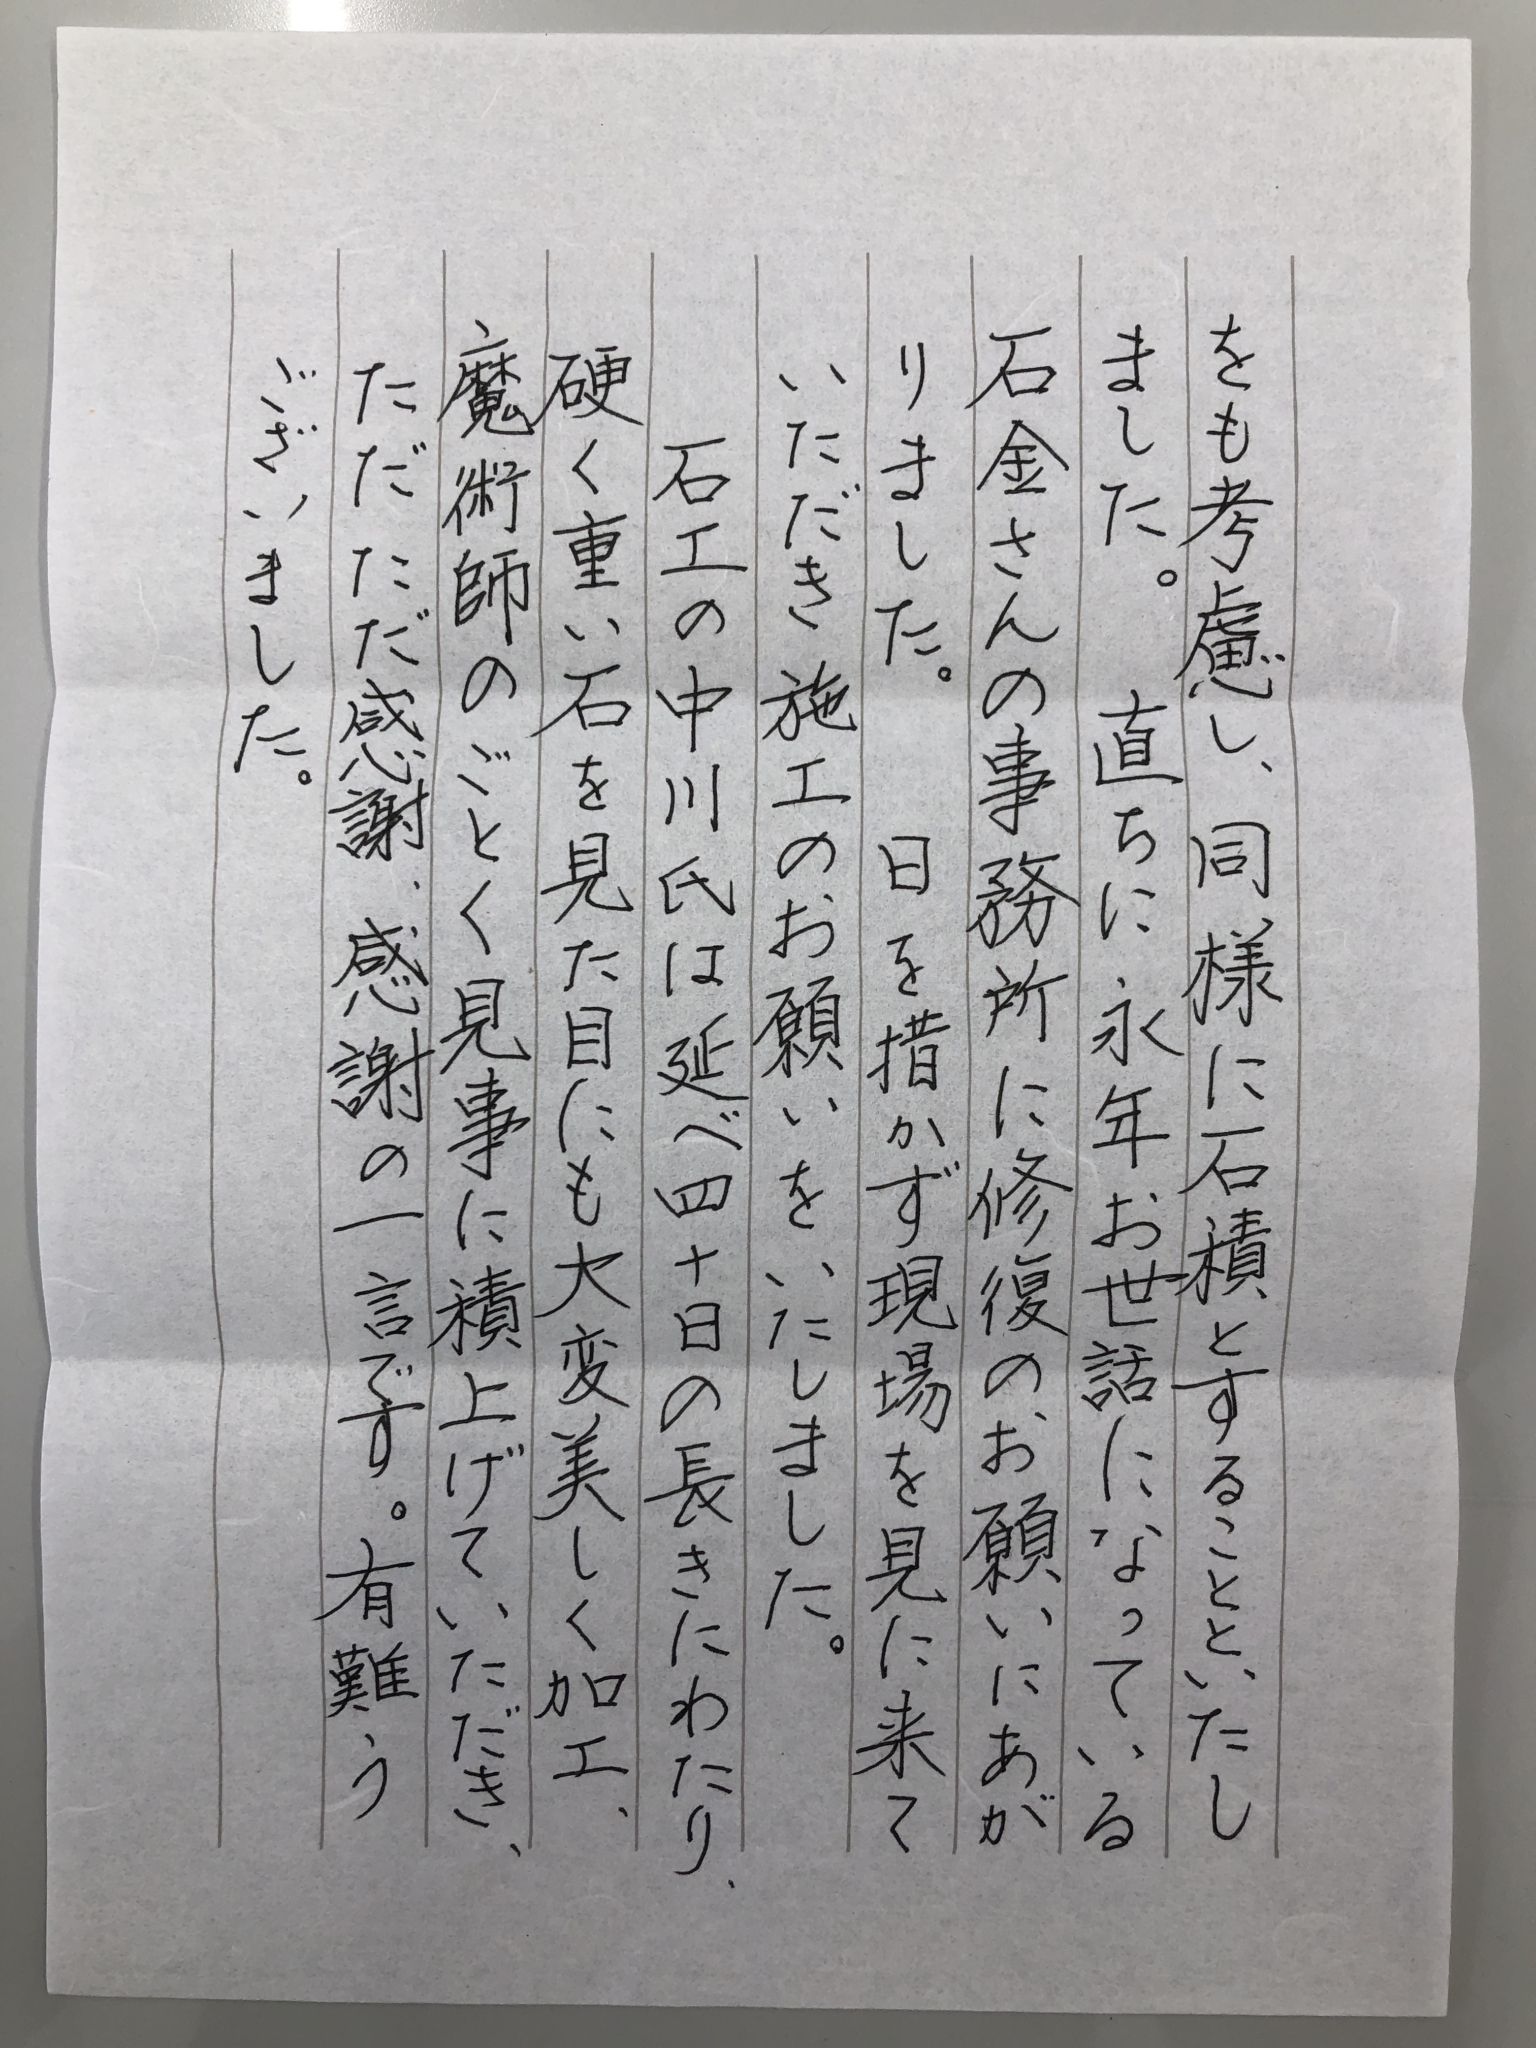 をも考慮し、同様に石積とすることといたし
ました。直ちに永年お世話になっている
石金さんの事務所に修復のお願いにあが
りました。日を措かず現場を見に来て
いただき施工のお願いをいたしました。
石工の中川氏は延べ四十日の長きにわたり、
硬く重い石を見た目にも大変美しく加工、
魔術師のごとく見事に積上げていただき、
ただただ感謝、感謝の一言です。有難う
ございました。